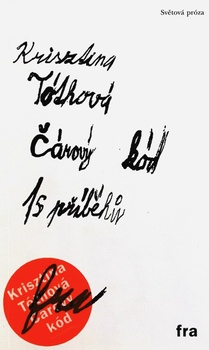 Světová próza
Krisztina
Tóthová
Čárový kód
15 příběhů
Krisztina
Tóthová
Čárový
kód
fra
fra